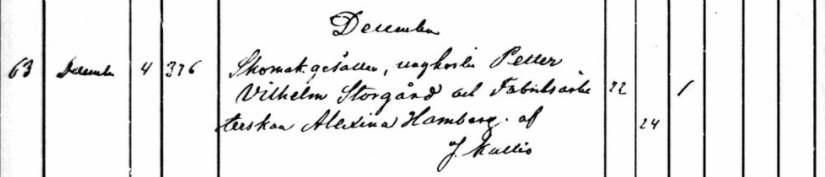 December
63 December 4 376 Skomak.gesällen, ungkarlen Petter 22 1
Vilhelm Storgård och Fabriksarbe
terskan Alexina Hamberg. af 24
J. Kallio